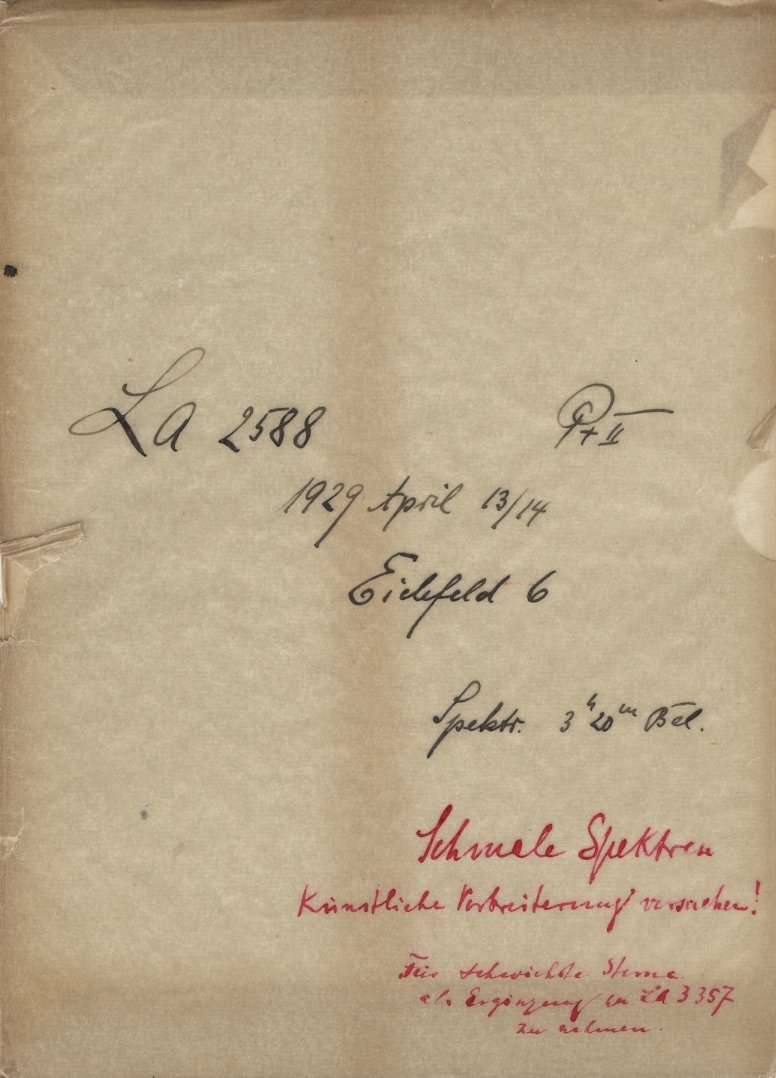 La 2588 Pr II
1929 April 13/14
Eichfeld 6
Spektr. 3h 20m Bel.
Schmale Spektren
Künstliche Verbreiterung versuchen!
Für schwächste Sterne
als Ergänzung zu La 3357
zu nehmen.